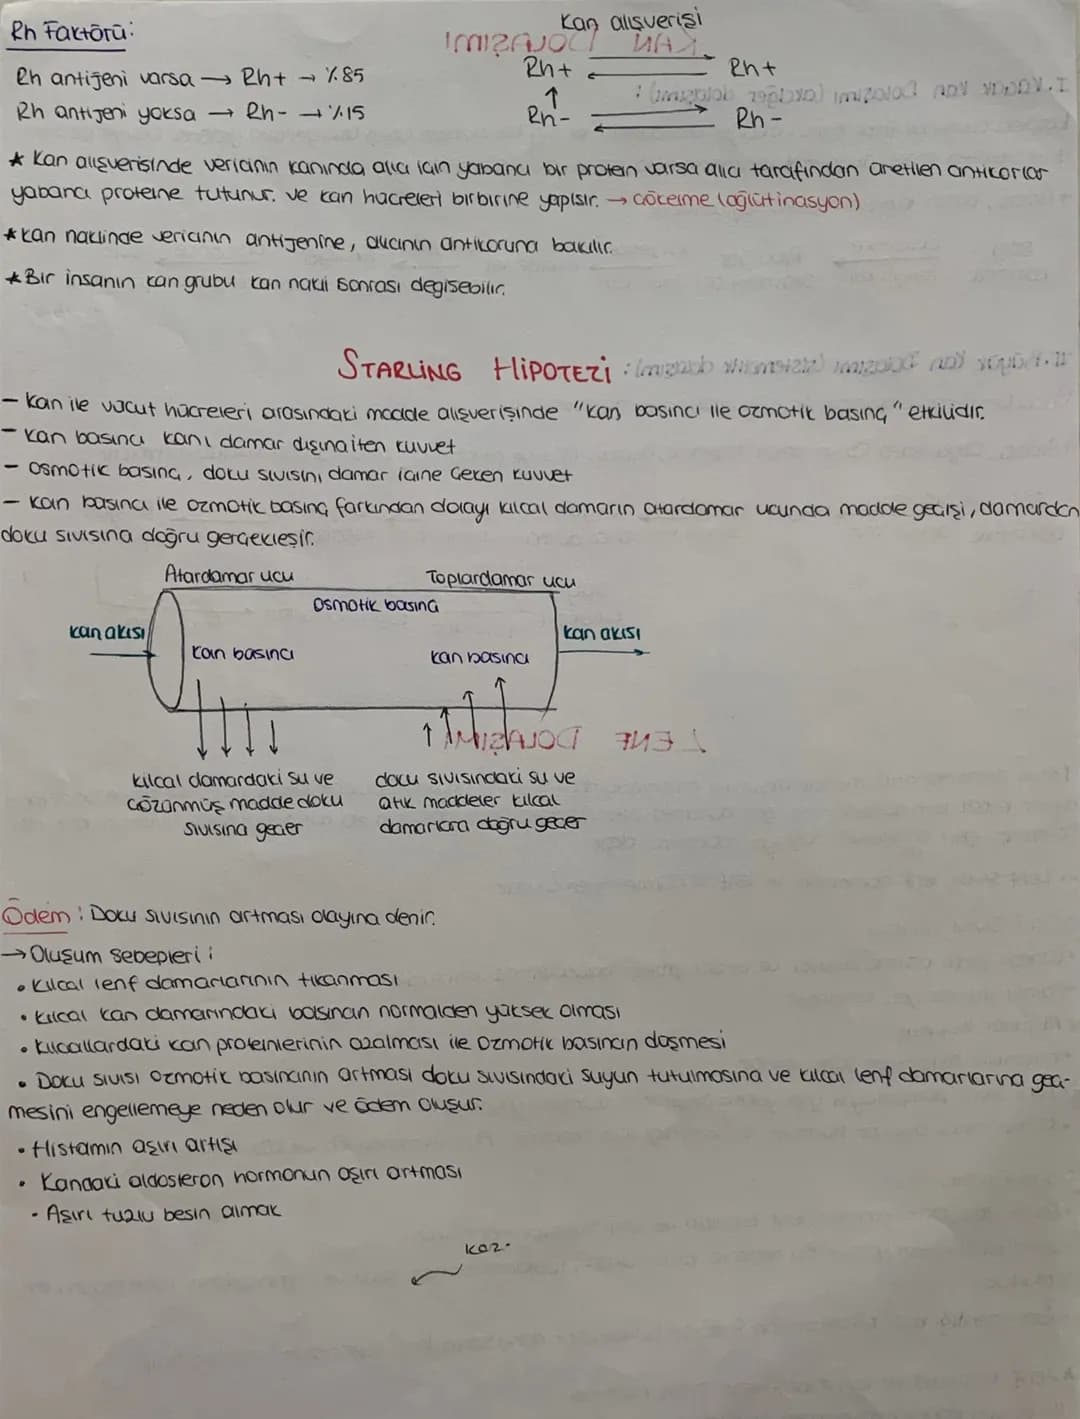 Rh Faktörü:
Kan alışverişi
Rh antijeni varsa → Rh+ → %85
Rh+ Rh+
Rh antijeni yoksa → Rh- → %15
Rh- Rh-
* Kan alışverişinde vericinin kanında alıcı için yabancı bir protein varsa alıcı tarafından üretilen antikorlar
yabancı proteine tutunur. ve kan hücreleri birbirine yapışır. → çökelme (aglütinasyon)
* Kan naklinde vericinin antijenine, alıcının antikoruna bakılır.
* Bir insanın kan grubu kan nakli sonrası değişebilir.
STARLING HİPOTEZİ
- Kan ile vücut hücreleri arasındaki madde alışverişinde "kan basıncı ile ozmotik basınç" etkilidir.
- Kan basıncı kanı damar dışına iten kuvvet
- Osmotik basınç, doku sıvısını damar içine çeken kuvvet
- Kan basıncı ile ozmotik basınç farkından dolayı kılcal damarın atardamar ucunda madde geçişi, damardan
doku sıvısına doğru gerçekleşir.
Atardamar ucu Toplardamar ucu
Osmotik basınç
kan akısı kan akısı
kan basıncı kan basıncı
kılcal damardaki su ve
çözünmüş madde doku
sıvısına geçer
doku sıvısındaki su ve
atık maddeler kılcal
damarlara doğru geçer
Ödem: Doku sıvısının artması olayına denir.
→ Oluşum sebepleri:
• Kılcal lenf damarlarının tıkanması
• Kılcal kan damarındaki basıncın normalden yüksek olması
• Kılcallardaki kan proteinlerinin azalması ile ozmotik basıncın düşmesi
• Doku sıvısı ozmotik basıncının artması doku sıvısındaki suyun tutulmasına ve kılcal lenf damarlarına geç-
mesini engellemeye neden olur ve ödem oluşur.
• Histamin aşırı artışı
• Kandaki aldosteron hormonun aşırı artması
• Aşırı tuzlu besin almak